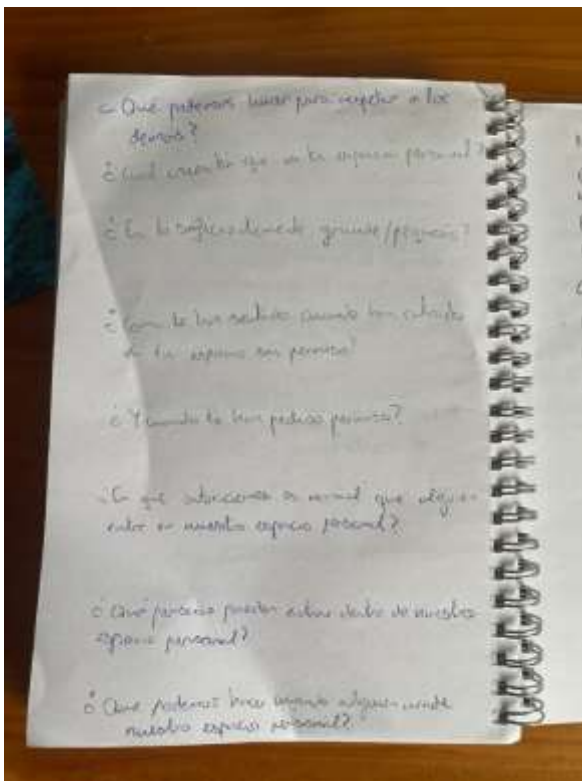 ¿Qué podemos hacer para respetar a los
demás?
¿Cuál crees tú que es tu espacio personal?
¿Es lo suficientemente grande/pequeño?
¿Como te has sentido cuando han entrado
en tu espacio sin permiso?
¿Y cuando te han pedido permiso?
¿En qué situaciones es normal que alguien
entre en nuestro espacio personal?
¿Qué personas pueden entrar dentro de nuestro
espacio personal?
¿Qué podemos hacer cuando alguien invade
nuestro espacio personal?